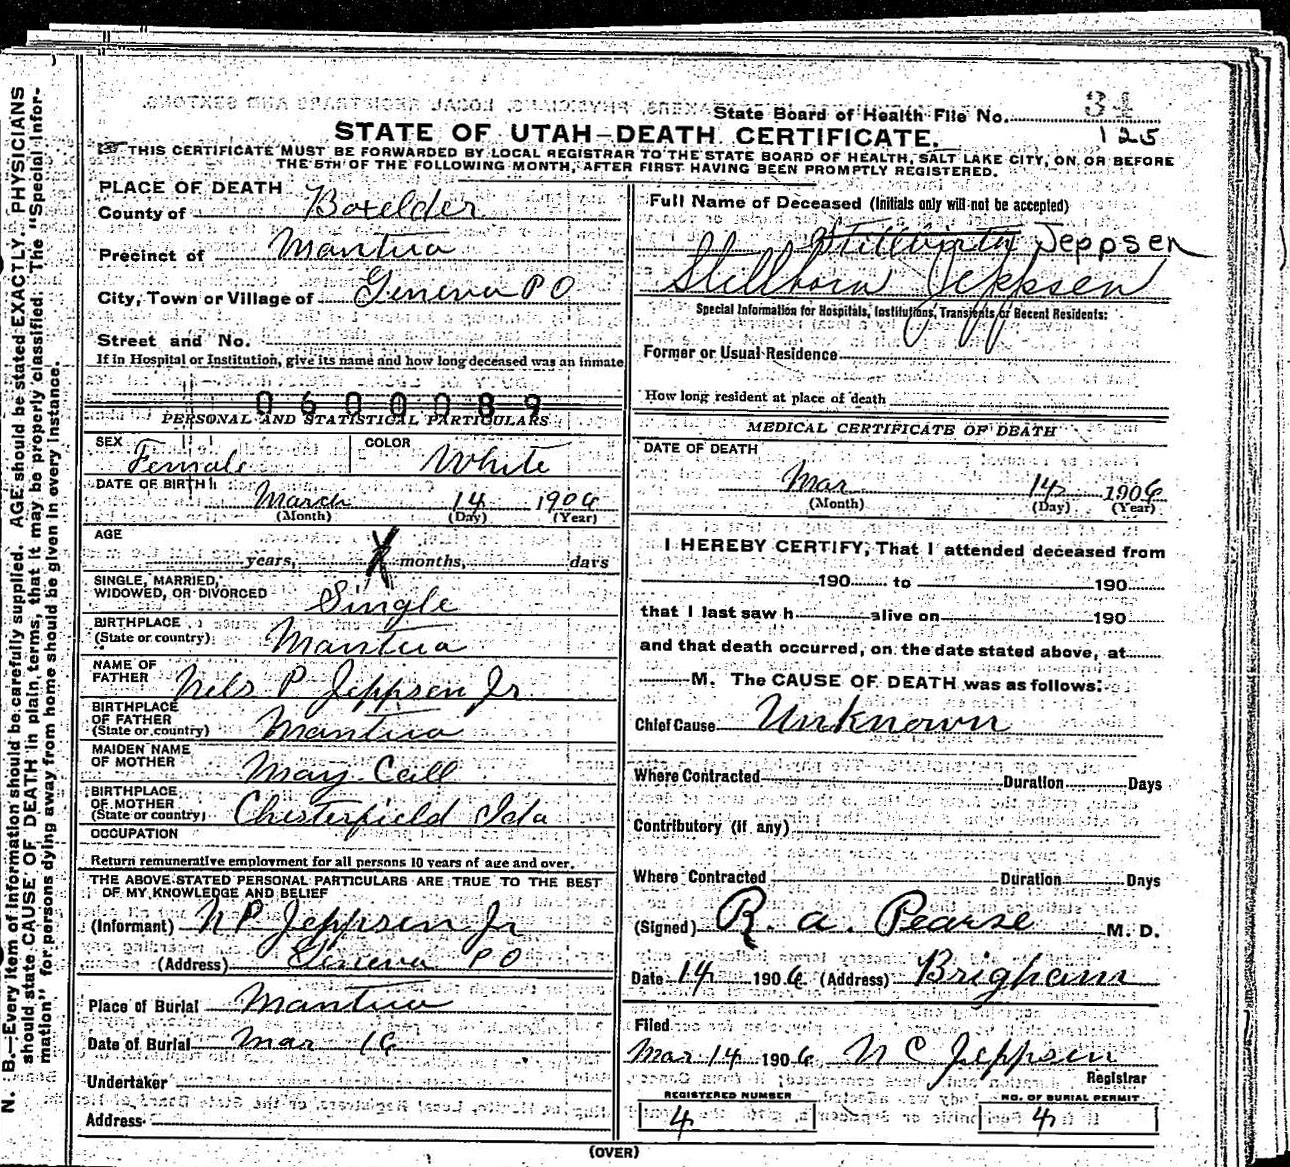 State Board of Health File No. 34
125
STATE OF UTAH—DEATH CERTIFICATE.
THIS CERTIFICATE MUST BE FORWARDED BY LOCAL REGISTRAR TO THE STATE BOARD OF HEALTH, SALT LAKE CITY, ON OR BEFORE
THE 5TH OF THE FOLLOWING MONTH, AFTER FIRST HAVING BEEN PROMPTLY REGISTERED.
N. B.—Every item of information should be carefully supplied. AGE should be stated EXACTLY. PHYSICIANS
should state CAUSE OF DEATH in plain terms, that it may be properly classified. The "Special Infor-
mation" for persons dying away from home should be given in every instance.
PLACE OF DEATH
County of Boxelder
Precinct of Mantua
City, Town or Village of Geneva P O
Street and No.
If in Hospital or Institution, give its name and how long deceased was an inmate
0600089
PERSONAL AND STATISTICAL PARTICULARS
SEX Female COLOR White
DATE OF BIRTH March 14 1906
(Month) (Day) (Year)
AGE
years, months, days
SINGLE, MARRIED,
WIDOWED, OR DIVORCED Single
BIRTHPLACE
(State or country) Mantua
NAME OF
FATHER Nels P Jeppsen Jr
BIRTHPLACE
OF FATHER
(State or country) Mantua
MAIDEN NAME
OF MOTHER May Call
BIRTHPLACE
OF MOTHER
(State or country) Chesterfield Ida
OCCUPATION
Return remunerative employment for all persons 10 years of age and over.
THE ABOVE STATED PERSONAL PARTICULARS ARE TRUE TO THE BEST
OF MY KNOWLEDGE AND BELIEF
(Informant) N P Jeppsen Jr
(Address) Geneva P O
Place of Burial Mantua
Date of Burial Mar 16
Undertaker
Address
Full Name of Deceased (Initials only will not be accepted)
Jeppsen
Stillborn Jeppsen
Special Information for Hospitals, Institutions, Transients or Recent Residents:
Former or Usual Residence
How long resident at place of death
MEDICAL CERTIFICATE OF DEATH
DATE OF DEATH
Mar 14 1906
(Month) (Day) (Year)
I HEREBY CERTIFY, That I attended deceased from
190 to 190
that I last saw h alive on 190
and that death occurred, on the date stated above, at
M. The CAUSE OF DEATH was as follows:
Chief Cause Unknown
Where Contracted Duration Days
Contributory (if any)
Where Contracted Duration Days
(Signed) R. A. Pearse M. D.
Date 14 1906 (Address) Brigham
Filed
Mar 14 1906 N C Jeppsen
Registrar
REGISTERED NUMBER NO. OF BURIAL PERMIT
4 4
(OVER)